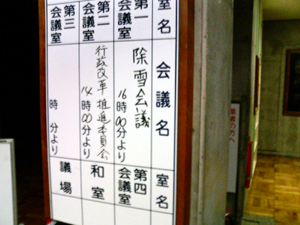 室名 会議名 室名
第一会議室 除雪会議 16時00分より 第四会議室
第二会議室 行政改革推進委員会 14時00分より 和室
第三会議室 時 分より 議場